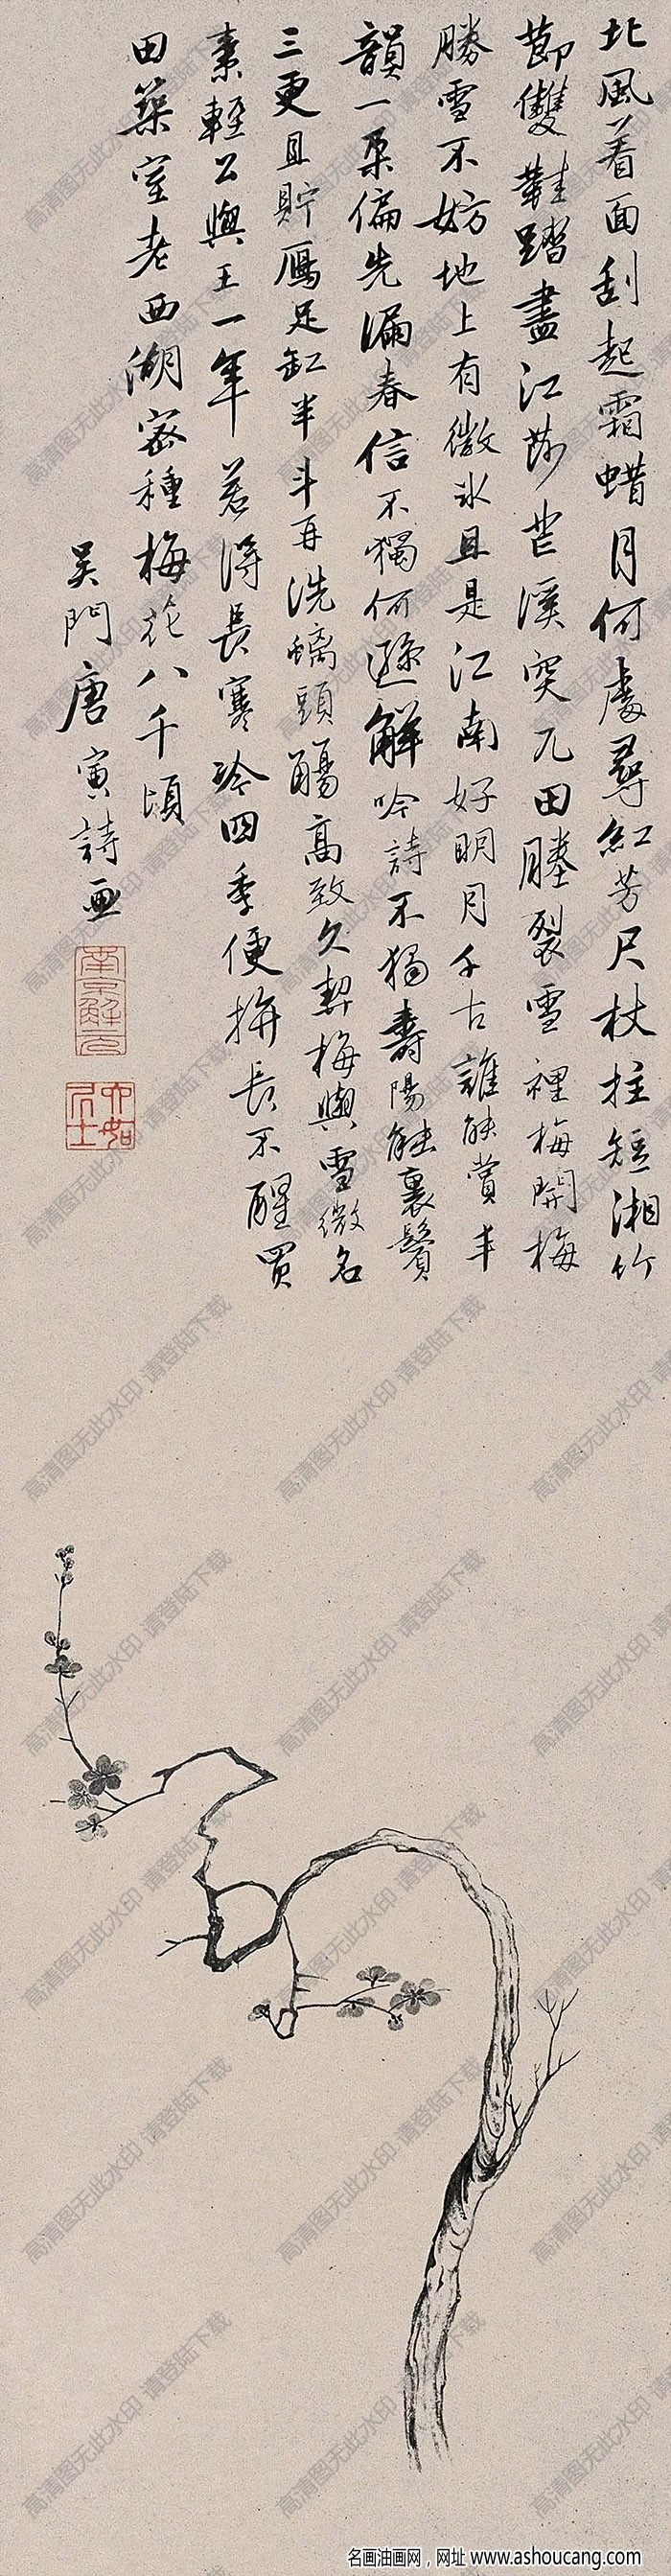 北風着面刮起霜蜡月何處尋紅芳尺杖拄短湘竹
節雙鞋踏盡江莎芒溪突兀田塍裂雪裡梅開梅
勝雪不妨地上有微氷且是江南好明月千古誰能賞丰
韻一朶偏先漏春信不獨何遜解吟詩不獨壽陽能裏鬢
三更且貯鴈足缸半斗再洗螭頭觴高致久契梅與雪微名
素輕公與王一年若得長寒冷四季便拚長不醒買
田築室老西湖密種梅花八千頃
吳門唐寅詩画
南京解元
六如居士
高清图无此水印 请登陆下载
名画油画网，网址 www.ashoucang.com